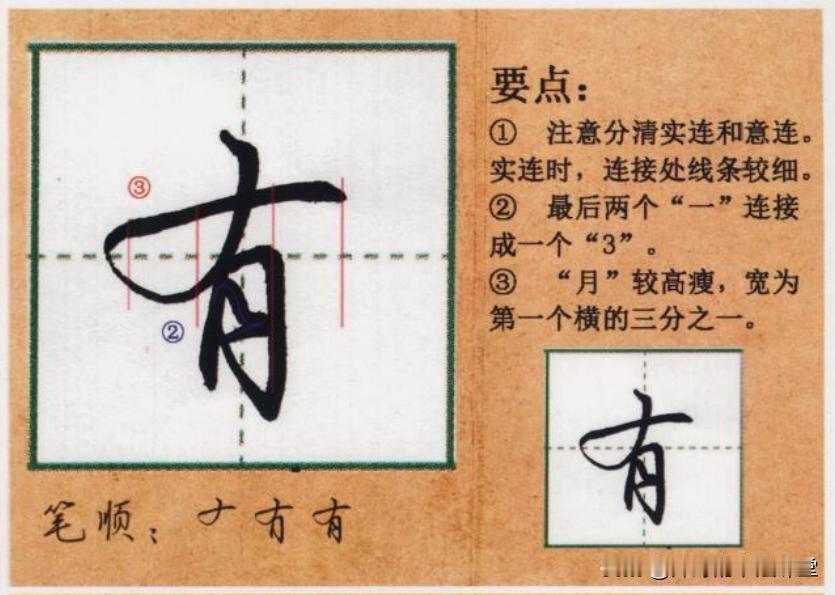 有
③
②
笔顺：𠂇 冇 有
要点：
① 注意分清实连和意连。
实连时，连接处线条较细。
② 最后两个“一”连接
成一个“3”。
③ “月”较高瘦，宽为
第一个横的三分之一。
有